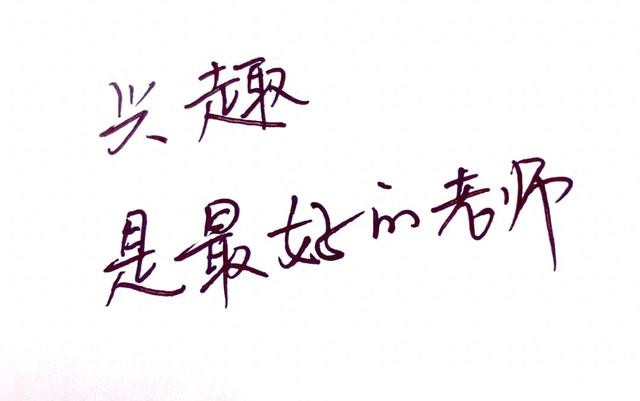 兴趣
是最好的老师